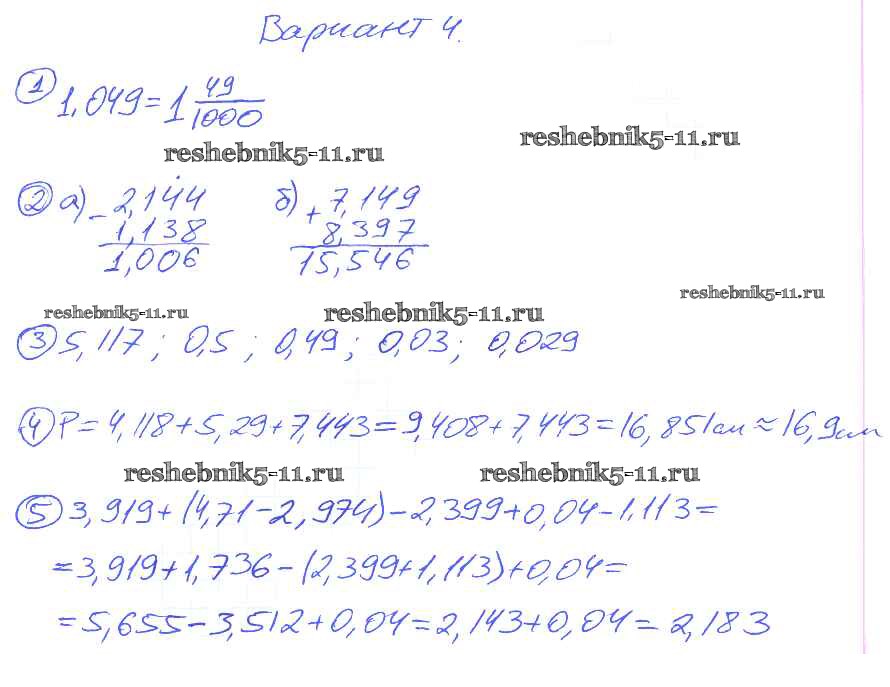 Вариант 4.
① 1,049 = 1 49/1000
reshebnik5-11.ru
reshebnik5-11.ru
② а) - 2,144 б) + 7,149
1,138 8,397
1,006 15,546
reshebnik5-11.ru
reshebnik5-11.ru reshebnik5-11.ru
③ 5,117; 0,5; 0,49; 0,03; 0,029
④ P = 4,118 + 5,29 + 7,443 = 9,408 + 7,443 = 16,851 см ≈ 16,9 см
reshebnik5-11.ru reshebnik5-11.ru
⑤ 3,919 + (4,71 - 2,974) - 2,399 + 0,04 - 1,113 =
= 3,919 + 1,736 - (2,399 + 1,113) + 0,04 =
= 5,655 - 3,512 + 0,04 = 2,143 + 0,04 = 2,183